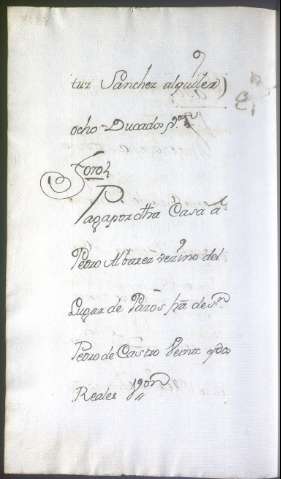 tuz Sanchez alquiler
ocho Ducados
Foros
Paga por otra Casa â
Pedro Albarez vezino del
Lugar de
Pedro de Castro Veinte
Reales